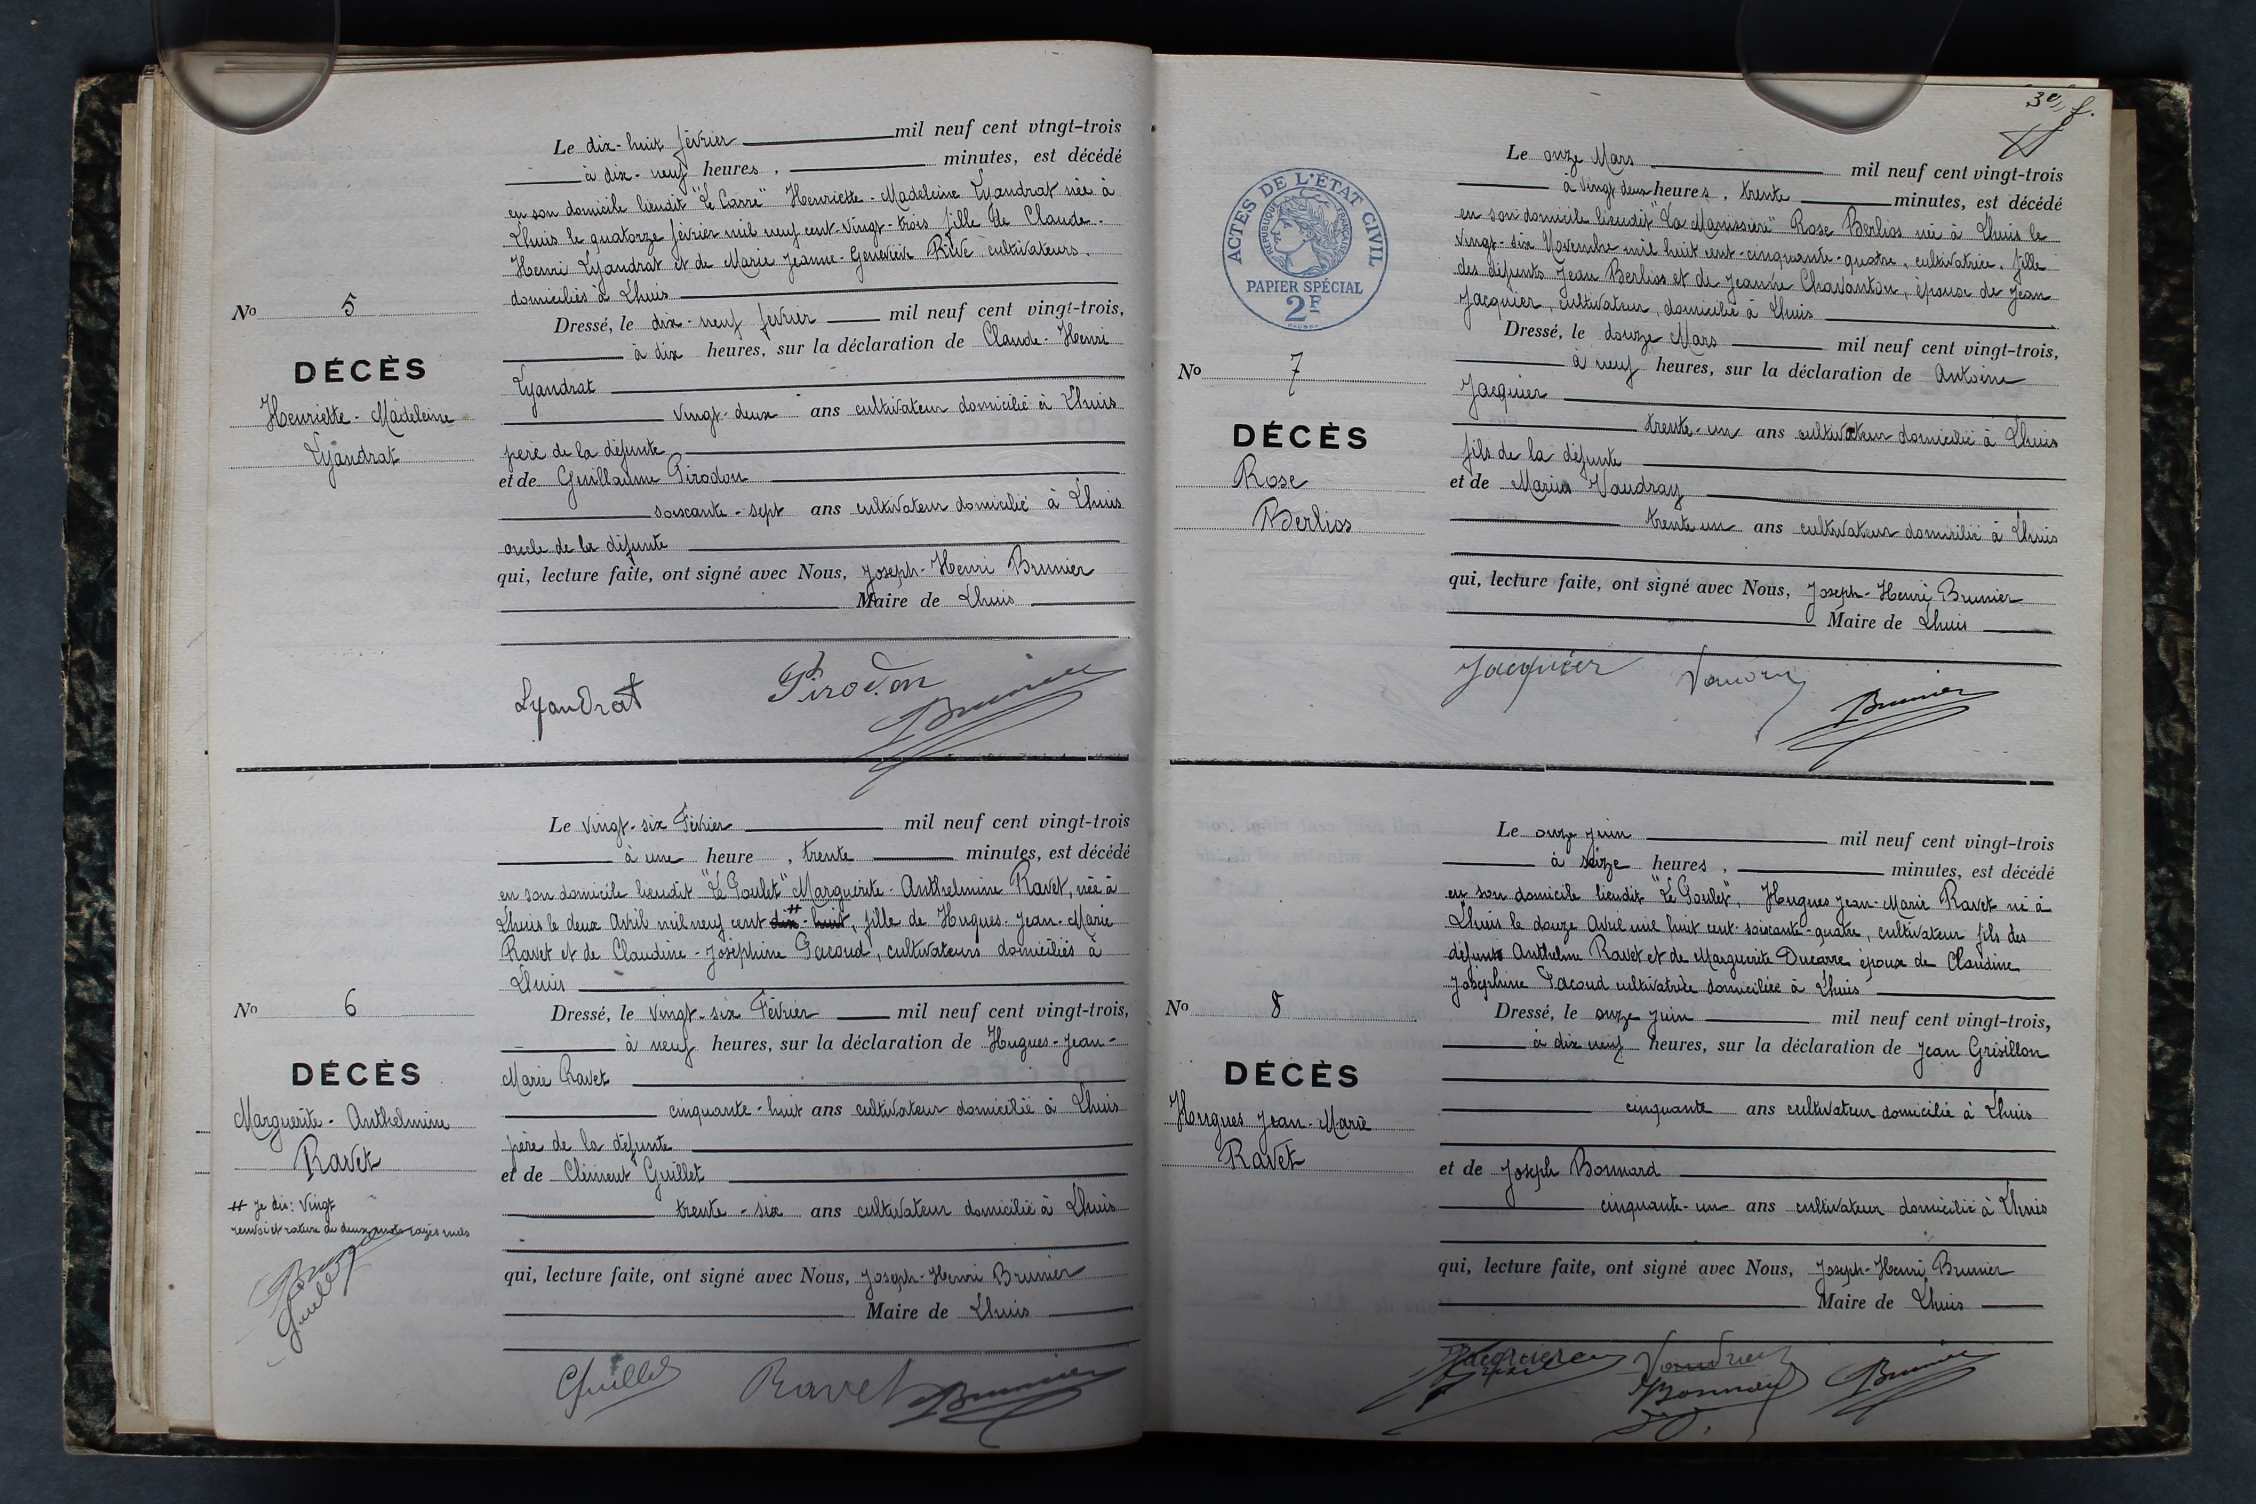 Le dix-huit février mil neuf cent vingt-trois
à dix-neuf heures, minutes, est décédé
en son domicile lieudit "Le Carré" Henriette-Madeleine Lyandrat née à
Lhuis le quatorze février mil neuf cent-vingt-trois fille de Claude-
Henri Lyandrat et de Marie Jeanne-Geneviève Rive cultivateurs.
domiciliés à Lhuis
No 5
Dressé, le dix-neuf février mil neuf cent vingt-trois,
à dix heures, sur la déclaration de Claude-Henri
DÉCÈS
Henriette-Madeleine
Lyandrat
Lyandrat
vingt-deux ans cultivateur domicilié à Lhuis
père de la défunte
et de Guillaume Pirodon
soixante-sept ans cultivateur domicilié à Lhuis
oncle de la défunte
qui, lecture faite, ont signé avec Nous, Joseph-Henri Brunier
Maire de Lhuis
Lyandrat Pirodon Brunier
Le vingt-six Février mil neuf cent vingt-trois
à une heure, trente minutes, est décédé
en son domicile lieudit "Le Goulet" Marguerite-Anthelmine Ravet, née à
Lhuis le deux Avril mil neuf cent # dix-huit, fille de Hugues-Jean-Marie
Ravet et de Claudine-Joséphine Gacoud, cultivateurs domiciliés à
Lhuis
No 6
Dressé, le vingt-six Février mil neuf cent vingt-trois,
à neuf heures, sur la déclaration de Hugues-Jean-
DÉCÈS
Marguerite-Anthelmine
Ravet
# Je dis: vingt
renvoi et rature de deux mots rayés nuls
Brunier
Guillet
Marie Ravet
cinquante-huit ans cultivateur domicilié à Lhuis
père de la défunte
et de Clément Guillet
trente-six ans cultivateur domicilié à Lhuis
qui, lecture faite, ont signé avec Nous, Joseph-Henri Brunier
Maire de Lhuis
Guillet Ravet Brunier
3e f.
ACTES DE L'ÉTAT CIVIL
RÉPUBLIQUE FRANÇAISE
PAPIER SPÉCIAL
2F
Le onze Mars mil neuf cent vingt-trois
à vingt deux heures, trente minutes, est décédé
en son domicile lieudit "La Manissière" Rose Berlios née à Lhuis le
vingt-six Novembre mil huit cent-cinquante-quatre, cultivatrice, fille
des défunts Jean Berlios et de Jeanne Chavanton, épouse de Jean
Jacquier, cultivateur, domicilié à Lhuis
No 7
Dressé, le douze Mars mil neuf cent vingt-trois,
à neuf heures, sur la déclaration de Antoine
DÉCÈS
Rose
Berlios
Jacquier
trente-un ans cultivateur domicilié à Lhuis
fils de la défunte
et de Marius Vaudray
trente un ans cultivateur domicilié à Lhuis
qui, lecture faite, ont signé avec Nous, Joseph-Henri Brunier
Maire de Lhuis
Jacquier Brunier
Le onze juin mil neuf cent vingt-trois
à seize heures, minutes, est décédé
en son domicile lieudit "Le Goulet", Hugues Jean-Marie Ravet né à
Lhuis le douze Avril mil huit cent-soixante-quatre, cultivateur fils des
défunts Anthelme Ravet et de Marguerite Ducarre époux de Claudine
Joséphine Gacoud cultivatrice domiciliée à Lhuis
No 8
Dressé, le onze juin mil neuf cent vingt-trois,
à dix neuf heures, sur la déclaration de Jean Grisillon
DÉCÈS
Hugues Jean-Marie
Ravet
cinquante ans cultivateur domicilié à Lhuis
et de Joseph Bonnard
cinquante-un ans cultivateur domicilié à Lhuis
qui, lecture faite, ont signé avec Nous, Joseph-Henri Brunier
Maire de Lhuis
Bonnard Brunier